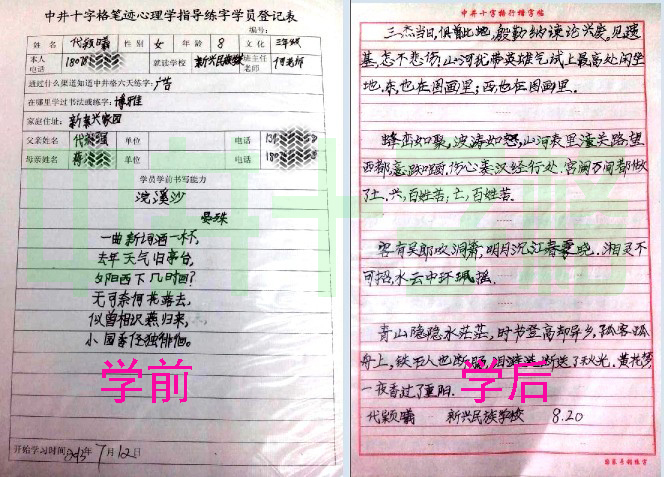 中井十字格笔迹心理学指导练字学员登记表
编号:
姓 名 代颖曦 性 别 女 年 龄 8 文 化 三年级
本人电话 180 就读学校 新兴民族学校 班主任老师 何老师
通过什么渠道知道中井格六天练字: 广告
在哪里学过书法或练字: 博雅
家庭住址: 新泰兴家园
父亲姓名 单位 电话
母亲姓名 单位 电话 180
学员学前书写能力
浣溪沙
晏殊
一曲新词酒一杯,
去年天气旧亭台,
夕阳西下几时回?
无可奈何花落去,
似曾相识燕归来,
小园香径独徘徊。
学前
开始学习时间 2013年7月12日
中井十字格行楷字帖
三杰当日,俱曾此地,殷勤纳谏论兴废。见遗
基,怎不悲伤,山河犹带英雄气,试上最高处闲坐
地,东,也在图画里;西,也在图画里.
峰峦如聚,波涛如怒,山河表里潼关路.望
西都,意踟蹰,伤心秦汉经行处.宫阙万间都做
了土.兴,百姓苦;亡,百姓苦.
客有吴郎吹洞箫,明月沉江春雾晓.湘灵不
可招,水云中环珮摇.
青山隐隐水茫茫,时节登高却异乡,孤客孤
舟上,铁石人也断肠,泪涟涟断送了秋光.黄花梦
一夜香,过了重阳.
学后
代颖曦 新兴民族学校 8.20